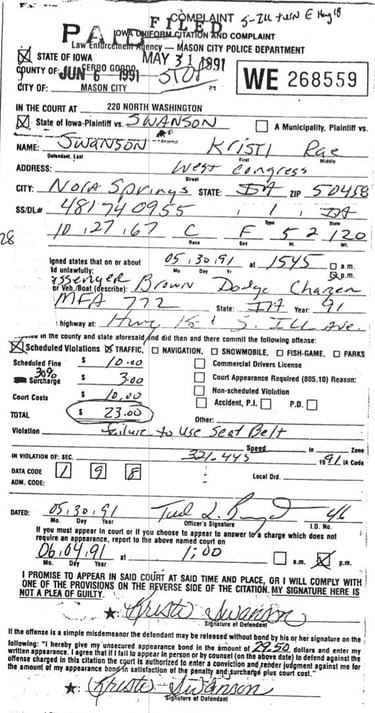 COMPLAINT 5-Ill turn E Hwy 18
PAID FILED
IOWA UNIFORM CITATION AND COMPLAINT
Law Enforcement Agency - MASON CITY POLICE DEPARTMENT
STATE OF IOWA MAY 31 1991
COUNTY OF CERRO GORDO JUN 6 1991
CITY OF: MASON CITY
WE 268559
IN THE COURT AT 220 NORTH WASHINGTON
State of Iowa-Plaintiff vs. SWANSON A Municipality, Plaintiff vs.
NAME: SWANSON Kristi Rae
Defendant, Last First Middle
ADDRESS: West Congress
Street
CITY: Nora Springs STATE: IA ZIP 50458
SS/DL# 481740955 IA
Type State
28 10 27 67 C F 52 120
Race Sex Ht. Wt.
igned states that on or about 05 30 91 at 1545 a.m.
d unlawfully: Mo. Day Yr. p.m.
assenger Brown Dodge
or Veh./Boat (describe):
MFA 772 State: IA Year: 91
highway at: Hwy 18 S. Ill Ave
in the county and state aforesaid and did then and there commit the following offense:
Scheduled Violations TRAFFIC, NAVIGATION, SNOWMOBILE, FISH-GAME, PARKS
Scheduled Fine $ 10.00 Commercial Drivers License
30% Surcharge $ 3.00 Court Appearance Required (805.10) Reason:
Non-scheduled Violation
Court Costs $ 10.00 Accident, P.I. P.D.
TOTAL $ 23.00 Other:
Violation failure to Use Seat Belt
Speed in Zone
IN VIOLATION OF: SEC. 321.445 1991 IA Code
DATA CODE 1 9 8 Local Ord.
ADM. CODE:
DATED: 05 30 91 46
Mo. Day Year Officer's Signature I.D. No.
If you must appear in court or if you choose to appear to answer to a charge which does not
require an appearance, report to the above named court on
06 04 91 at 1:00 a.m. p.m.
Mo. Day Year
I PROMISE TO APPEAR IN SAID COURT AT SAID TIME AND PLACE, OR I WILL COMPLY WITH
ONE OF THE PROVISIONS ON THE REVERSE SIDE OF THE CITATION. MY SIGNATURE HERE IS
NOT A PLEA OF GUILTY.
Kristi Swanson
Signature of Defendant
If the offense is a simple misdemeanor the defendant may be released without bond by his or her signature on the
following: "I hereby give my unsecured appearance bond in the amount of 29.50 dollars and enter my
written appearance. I agree that if I fail to appear in person or by counsel (on the above date) to defend against the
offense charged in this citation the court is authorized to enter a conviction and render judgment against me for
the amount of my appearance bond in satisfaction of the penalty and surcharge plus court cost."
Kristi Swanson
Signature of Defendant